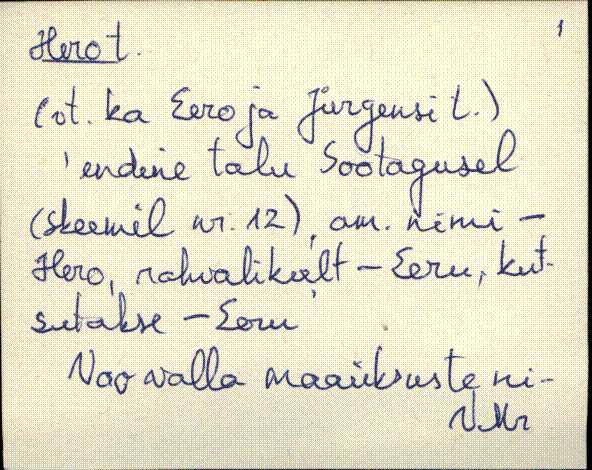 1
Hero t.
(vt. ka Eero ja Jürgensi t.)
'endine talu Sootagusel
(skeemil nr. 12), am. nimi -
Hero, rahvalikult - Eeru, kut-
sutakse - Eeru'
Noo valla maaüksuste ni-